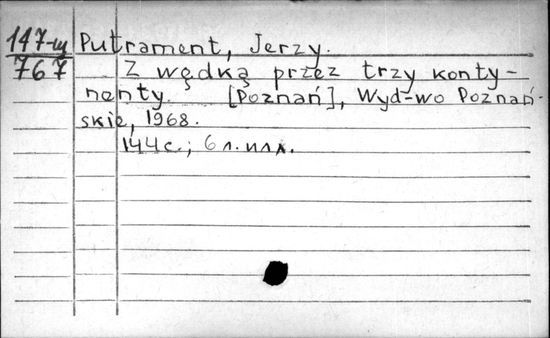 147-иу Putrament, Jerzy.
767 Z wędką przez trzy konty-
nenty. [Poznań], Wyd-wo Poznań-
skie, 1968.
144 с.; 6 л. илл.